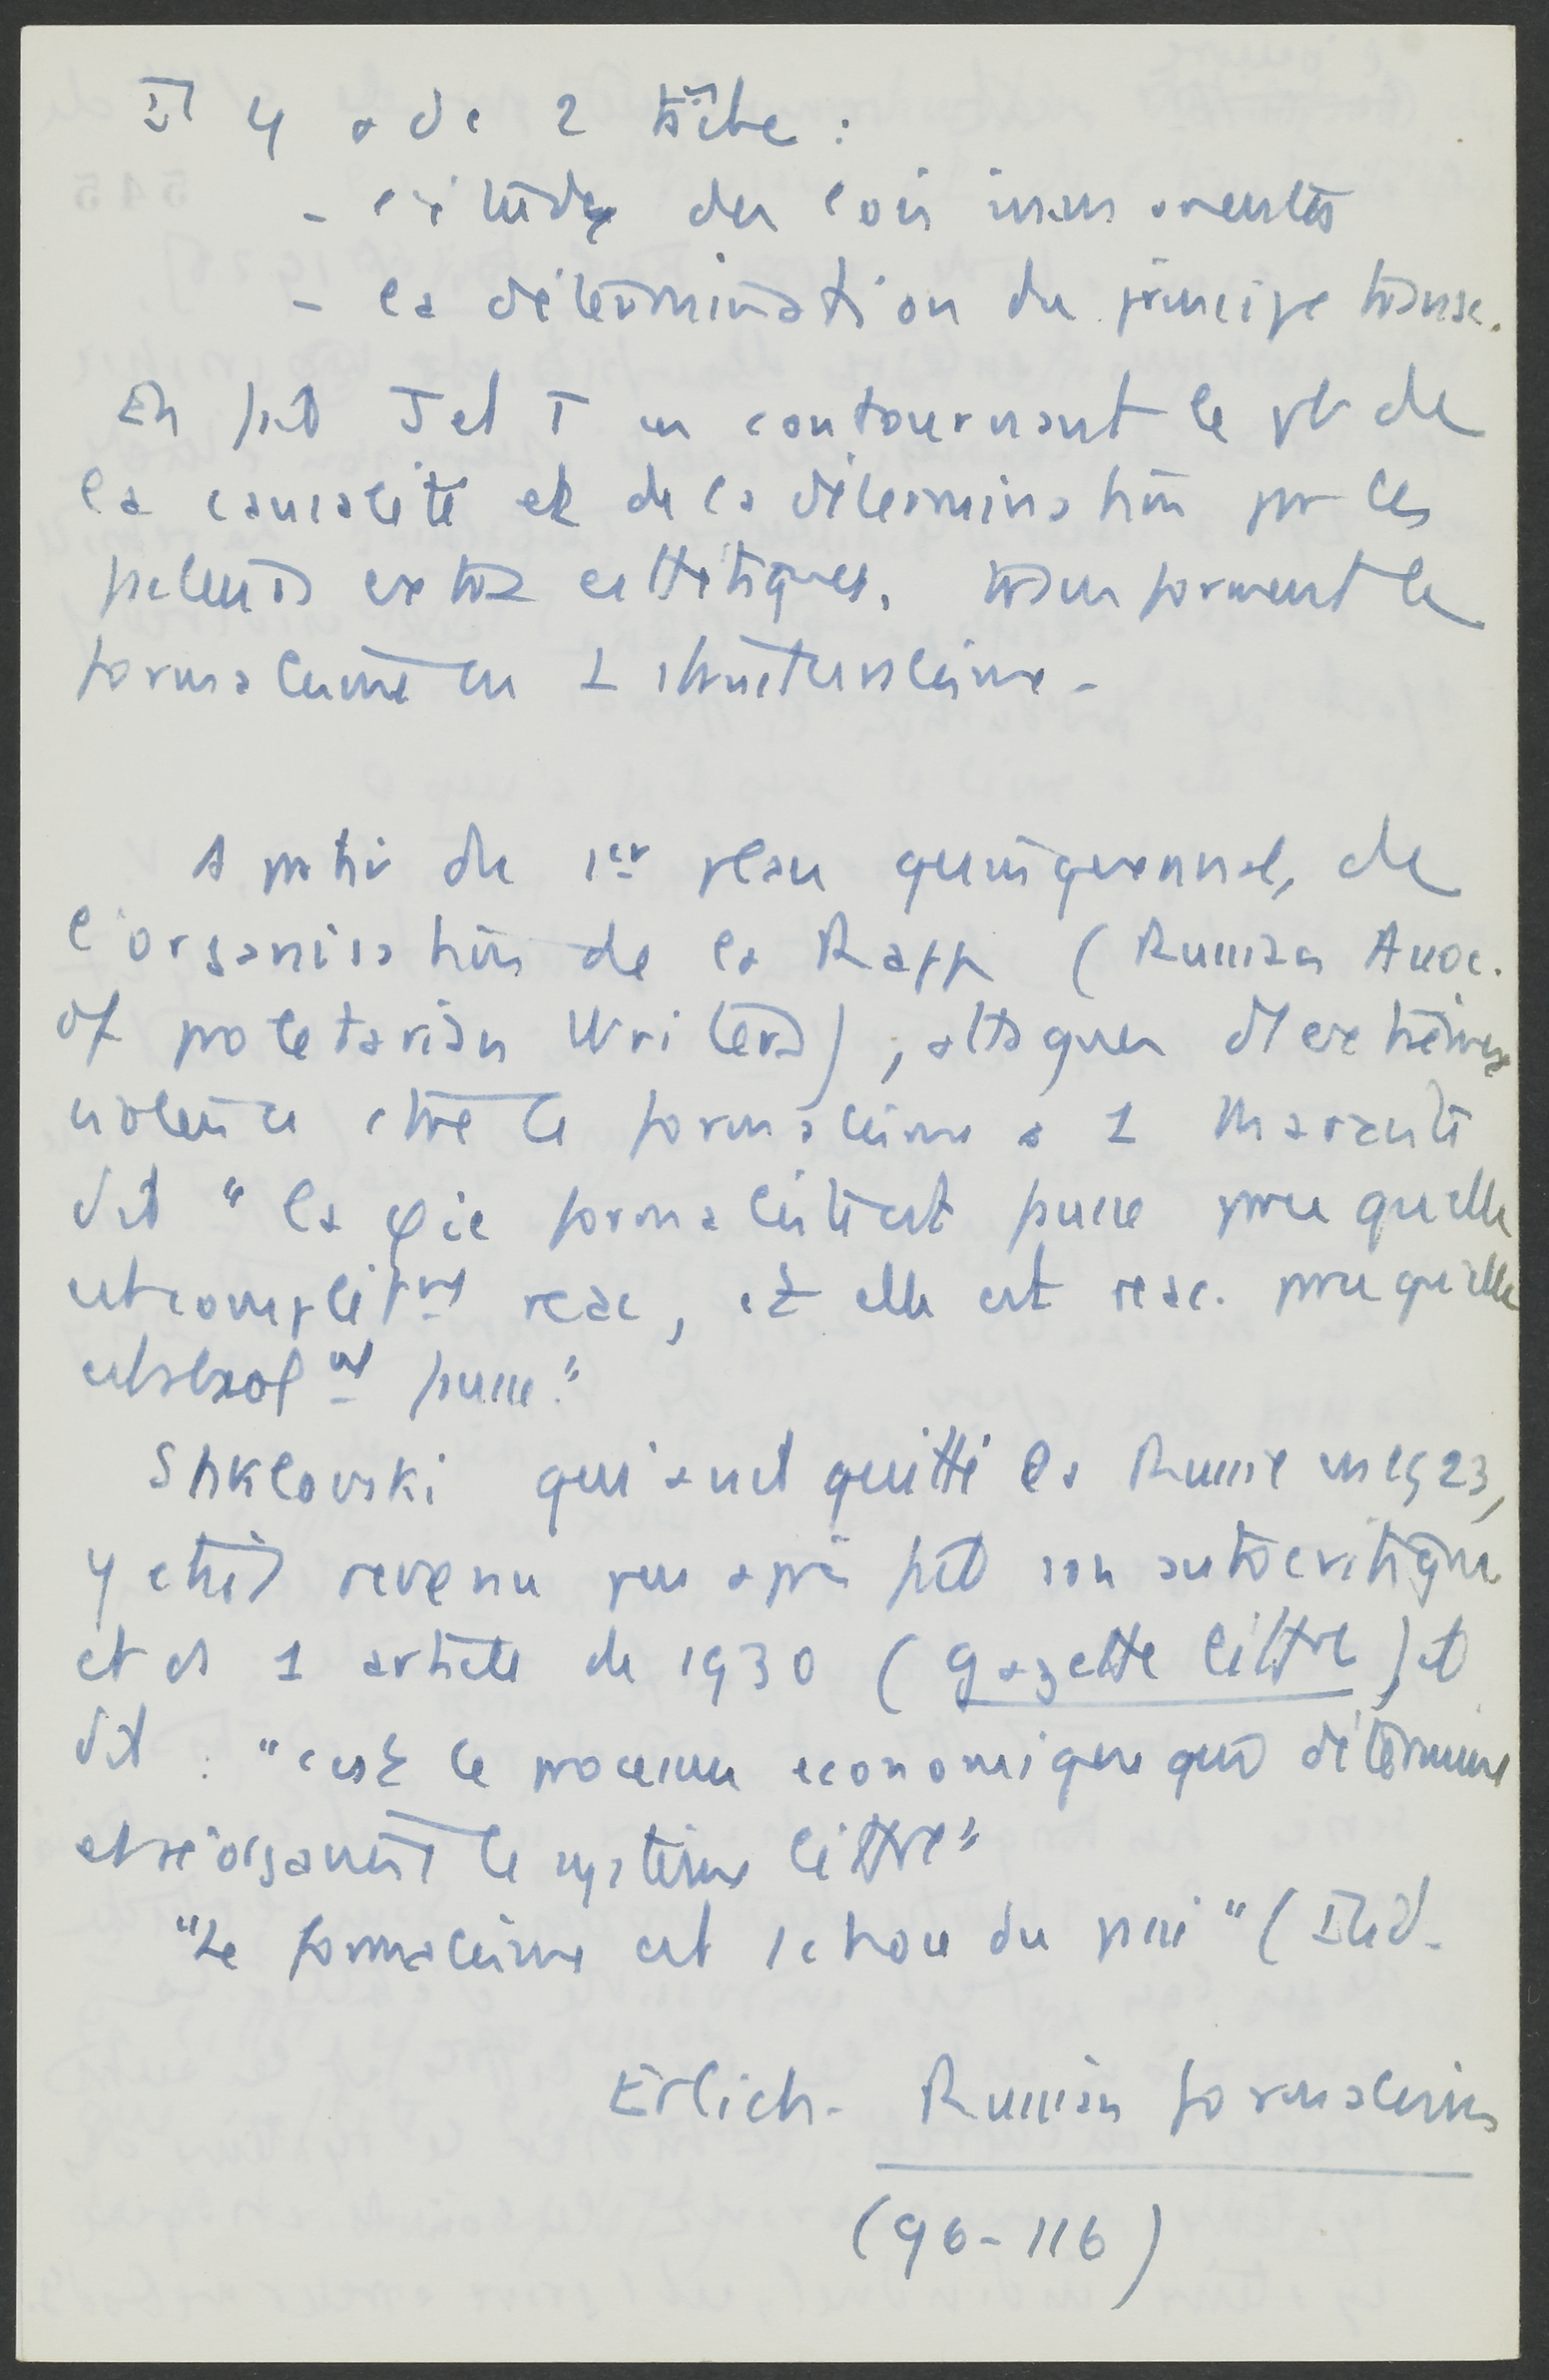 Il y a dc 2 tâche :
- étude des lois immanentes
- la détermination du principe transc.
En fait J et T en contournant le pb de
la causalité et de la détermination par les
facteurs extra esthétiques, transforment le
formalisme en 1 structuralisme -
A partir du 1er plan quinquennal, de
l'organisation de la Rapp (Russian Assoc.
of proletarian Writers), attaques d'extrême
violence ctre le formalisme 1 Marxiste
dit "la φie formaliste est fausse parce qu'elle
est complètmt reac, et elle est reac. parce qu'elle
est absolmt fausse."
Shklovski qui avait quitté la Russie en 1923,
y était revenu peu après fait son autocritique
et ds 1 article de 1930 (gazette littre) et
dit : "c'est le processus economique qui détermine
et réorganise le système littre"
"Le formalisme est 1 chose du passé" (Ibid.
Erlich - Russian formalism
(96-116)